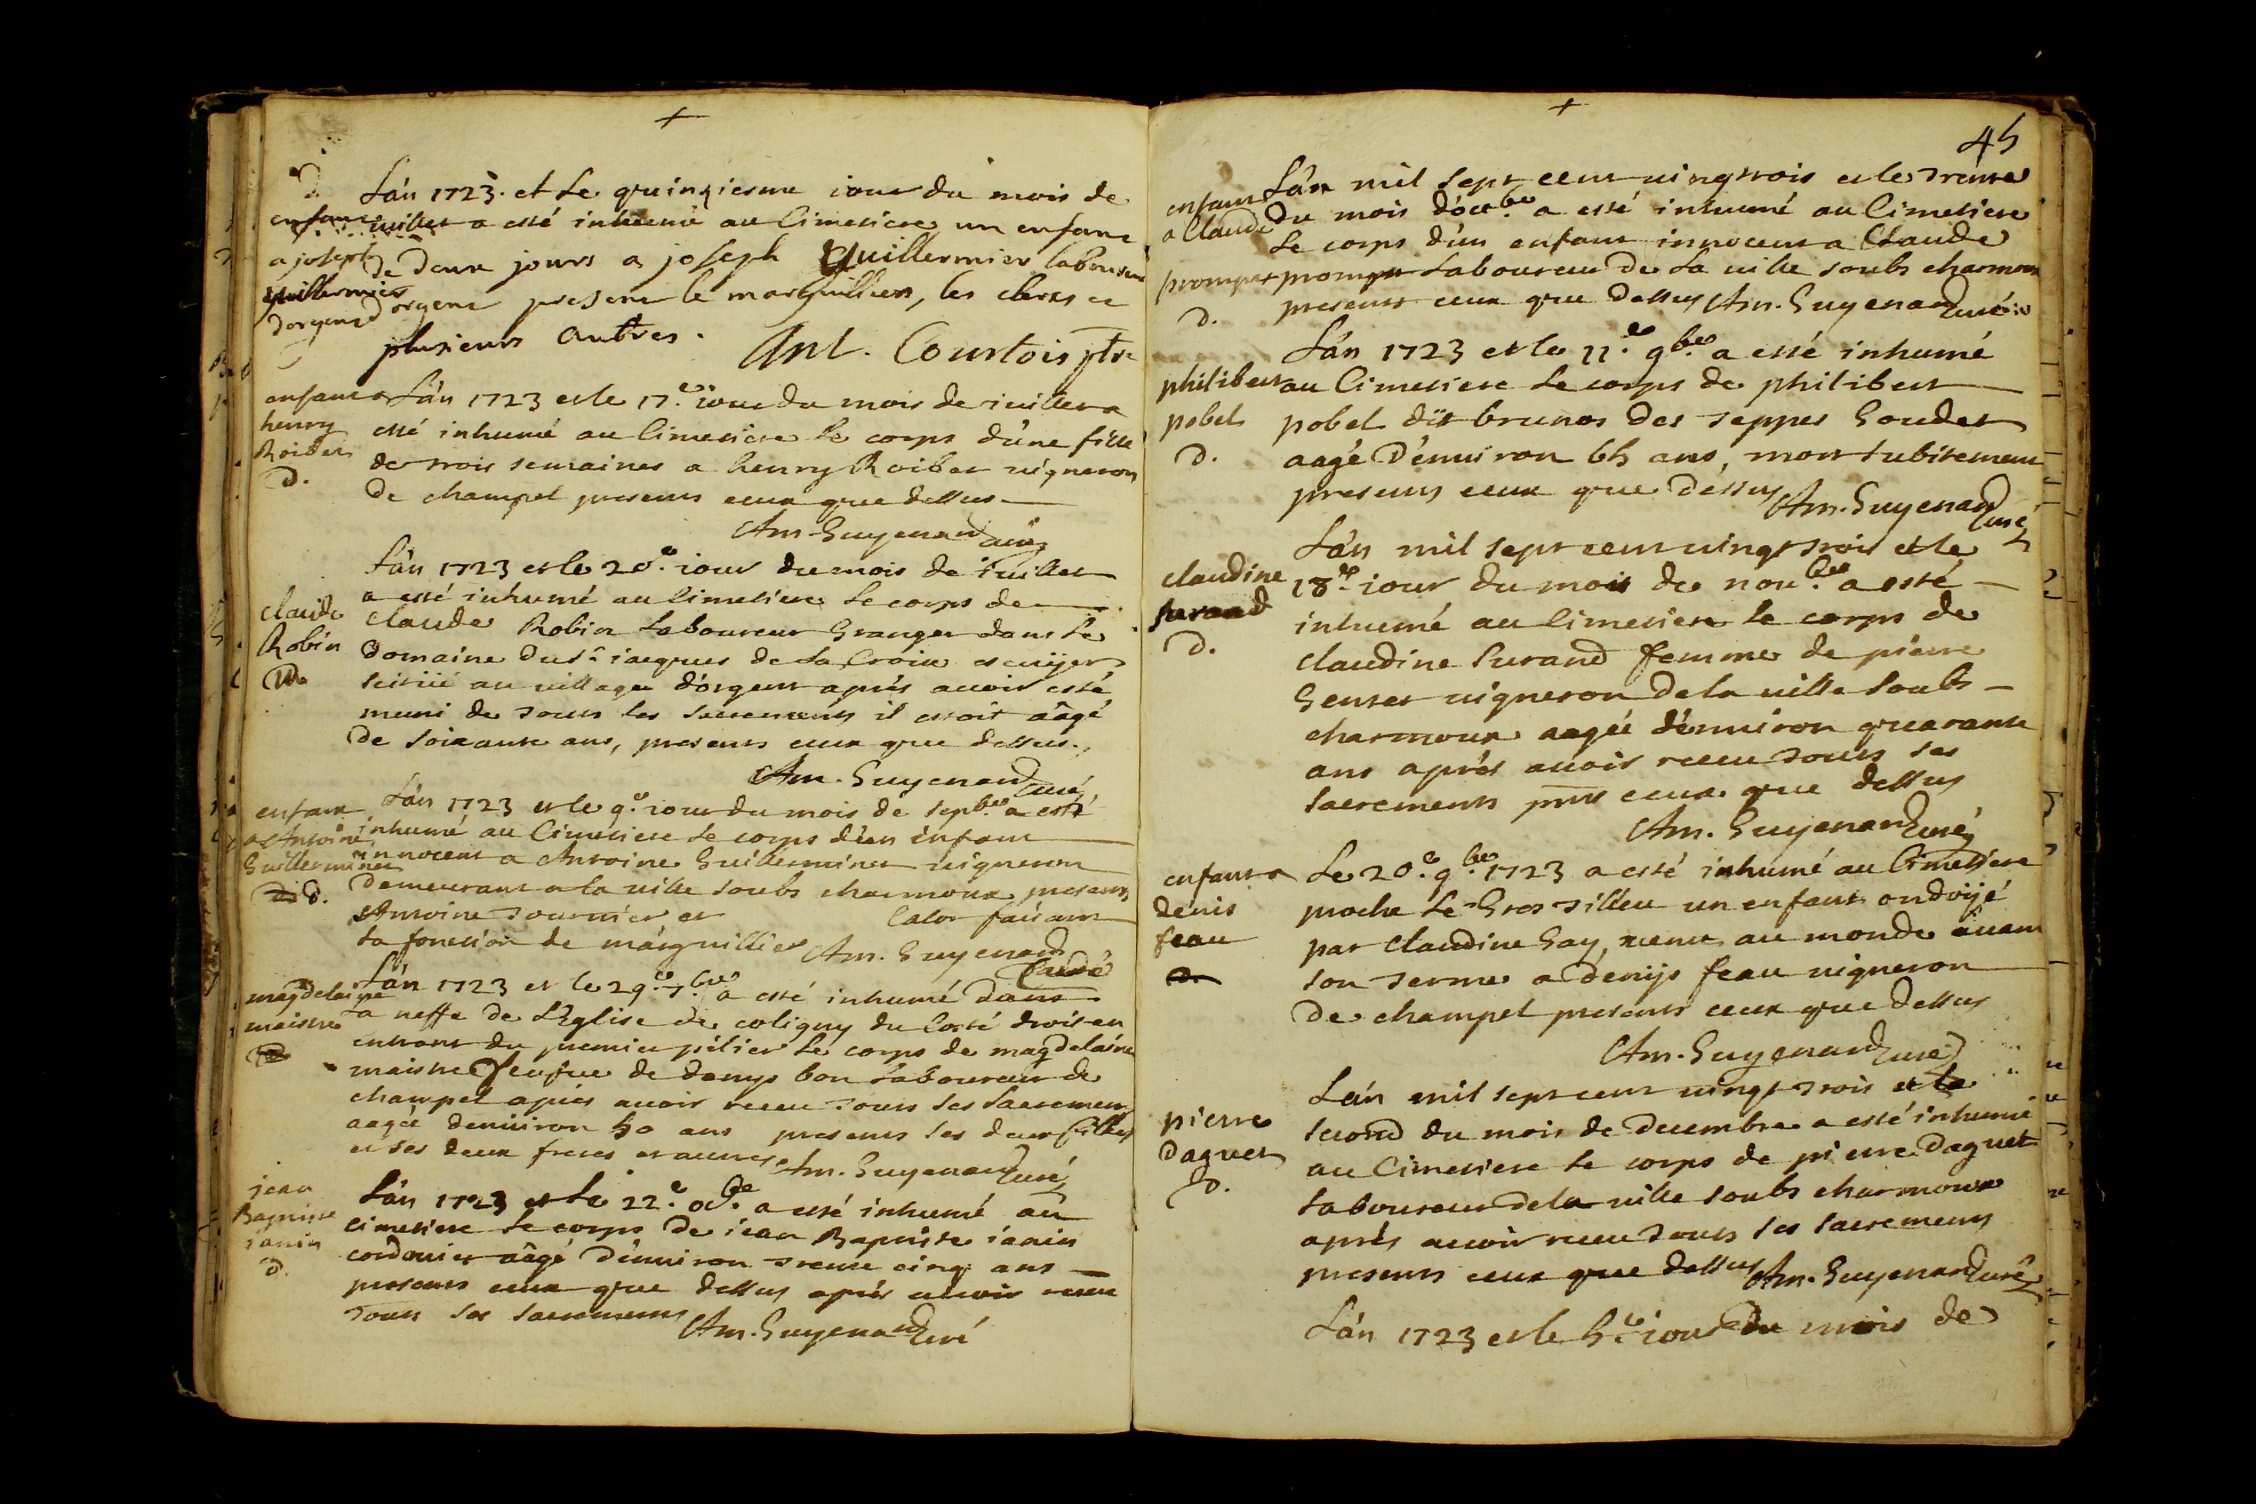 L'an 1723. et le quinziesme iour du mois de
enfant
iuillet a esté inhumé au Cimetiere un enfant
a joseph
de Deux jours a joseph Guillermier laboureur
guillermier
dorgent
dorgent present le marguillier, les clercs et
plusieurs autres.
Ant. Courtois ptre
enfant a
henry
Roibet
D.
L'an 1723 et le 17.e iour du mois de iuillet a
esté inhumé au Cimetiere le corps d'une fille
de trois semaines a henry Roibet uigneron
de champel presents ceux que dessus
Am. Guyenard curé
claude
Robin
D
L'an 1723 et le 20.e iour du mois de iuillet
a esté inhumé au Cimetiere le corps de
Claude Robin Laboureur Granger dans le
Domaine du sr iacques de la Croix escuijer
scitüé au uillage d'orgent aprés auoir esté
muni de tous les sacrements il estoit aâgé
de soixante ans, presents ceux que dessus.
Am. Guyenard curé
enfant
a Antoine
Guillerminet
D.
L'an 1723 et le 9.e iour du mois de sepbre a esté
inhumé au Cimetiere le corps d'un enfant
innocent a Antoine Guillerminet uigneron
demeurant a la uille soubs charmoux presents
Antoine tournier et Calor faisant
la fonction de marguillier Am. Guyenard
Curé
magdelaine
maistre
L'an 1723 et le 29.e 7.bre a esté inhumé dans
la neffe de L'Eglise de coligny du Costé droit en
entrant du premier pilier le corps de magdelaine
maistre ueufue de denys bon Laboureur de
champel aprés auoir receu tous les sacrements
aagée denuiron 50 ans presents ses deux filles
et ses deux freres et autres Am. Guyenard curé
jean
Baptiste
ianin
D.
L'an 1723 et le 22.e octbre a esté inhumé au
cimetiere le corps de iean Baptiste ianin
cordonier aâgé D'enuiron trente cinq ans
presents ceux que dessus aprés auoir receu
tous les sacrements Am. Guyenard curé
45
L'an mil sept cent uingt trois et le trente
enfant
a Claude
prompet
D.
du mois d'octbre a esté inhumé au Cimetiere
Le corps d'un enfant innocent a Claude
prompet Laboureur de la uille soubs charmoux
presents ceux que dessus Am. Guyenard curé
philibert
pobel
D.
L'an 1723 et le 11.e 9.bre a esté inhumé
au Cimetiere le corps de philibert
pobel dit brunot des seppes Goudet
aagé D'enuiron 65 ans, mort subitement
presents ceux que dessus Am. Guyenard
curé
claudine
surand
D.
L'an mil sept cent uingt trois et le
18.e iour du mois de nou.bre a esté
inhumé au Cimetiere le corps de
claudine surand femme de pierre
Gentet uigneron de la uille soubs
charmoux aagée d'enuiron quarante
ans aprés auoir receu tous ses
sacrements pnts ceux que dessus
Am. Guyenard curé
enfant a
denis
feau
D.
Le 20.e 9.bre 1723 a esté inhumé au Cimetiere
proche le Gros tilleu un enfant ondoijé
par claudine Gay, uenu au monde auant
son terme a denijs feau uigneron
De champel presents ceux que dessus
Am. Guyenard curé
pierre
Daguet
D.
L'an mil sept cent uingt trois et le
second du mois de Decembre a esté inhumé
au Cimetiere le corps de pierre Daguet
Laboureur de la uille soubs charmoux
aprés auoir receu tous ses sacrements
presents ceux que dessus Am. Guyenard curé
L'an 1723 et le 5.e iour du mois de